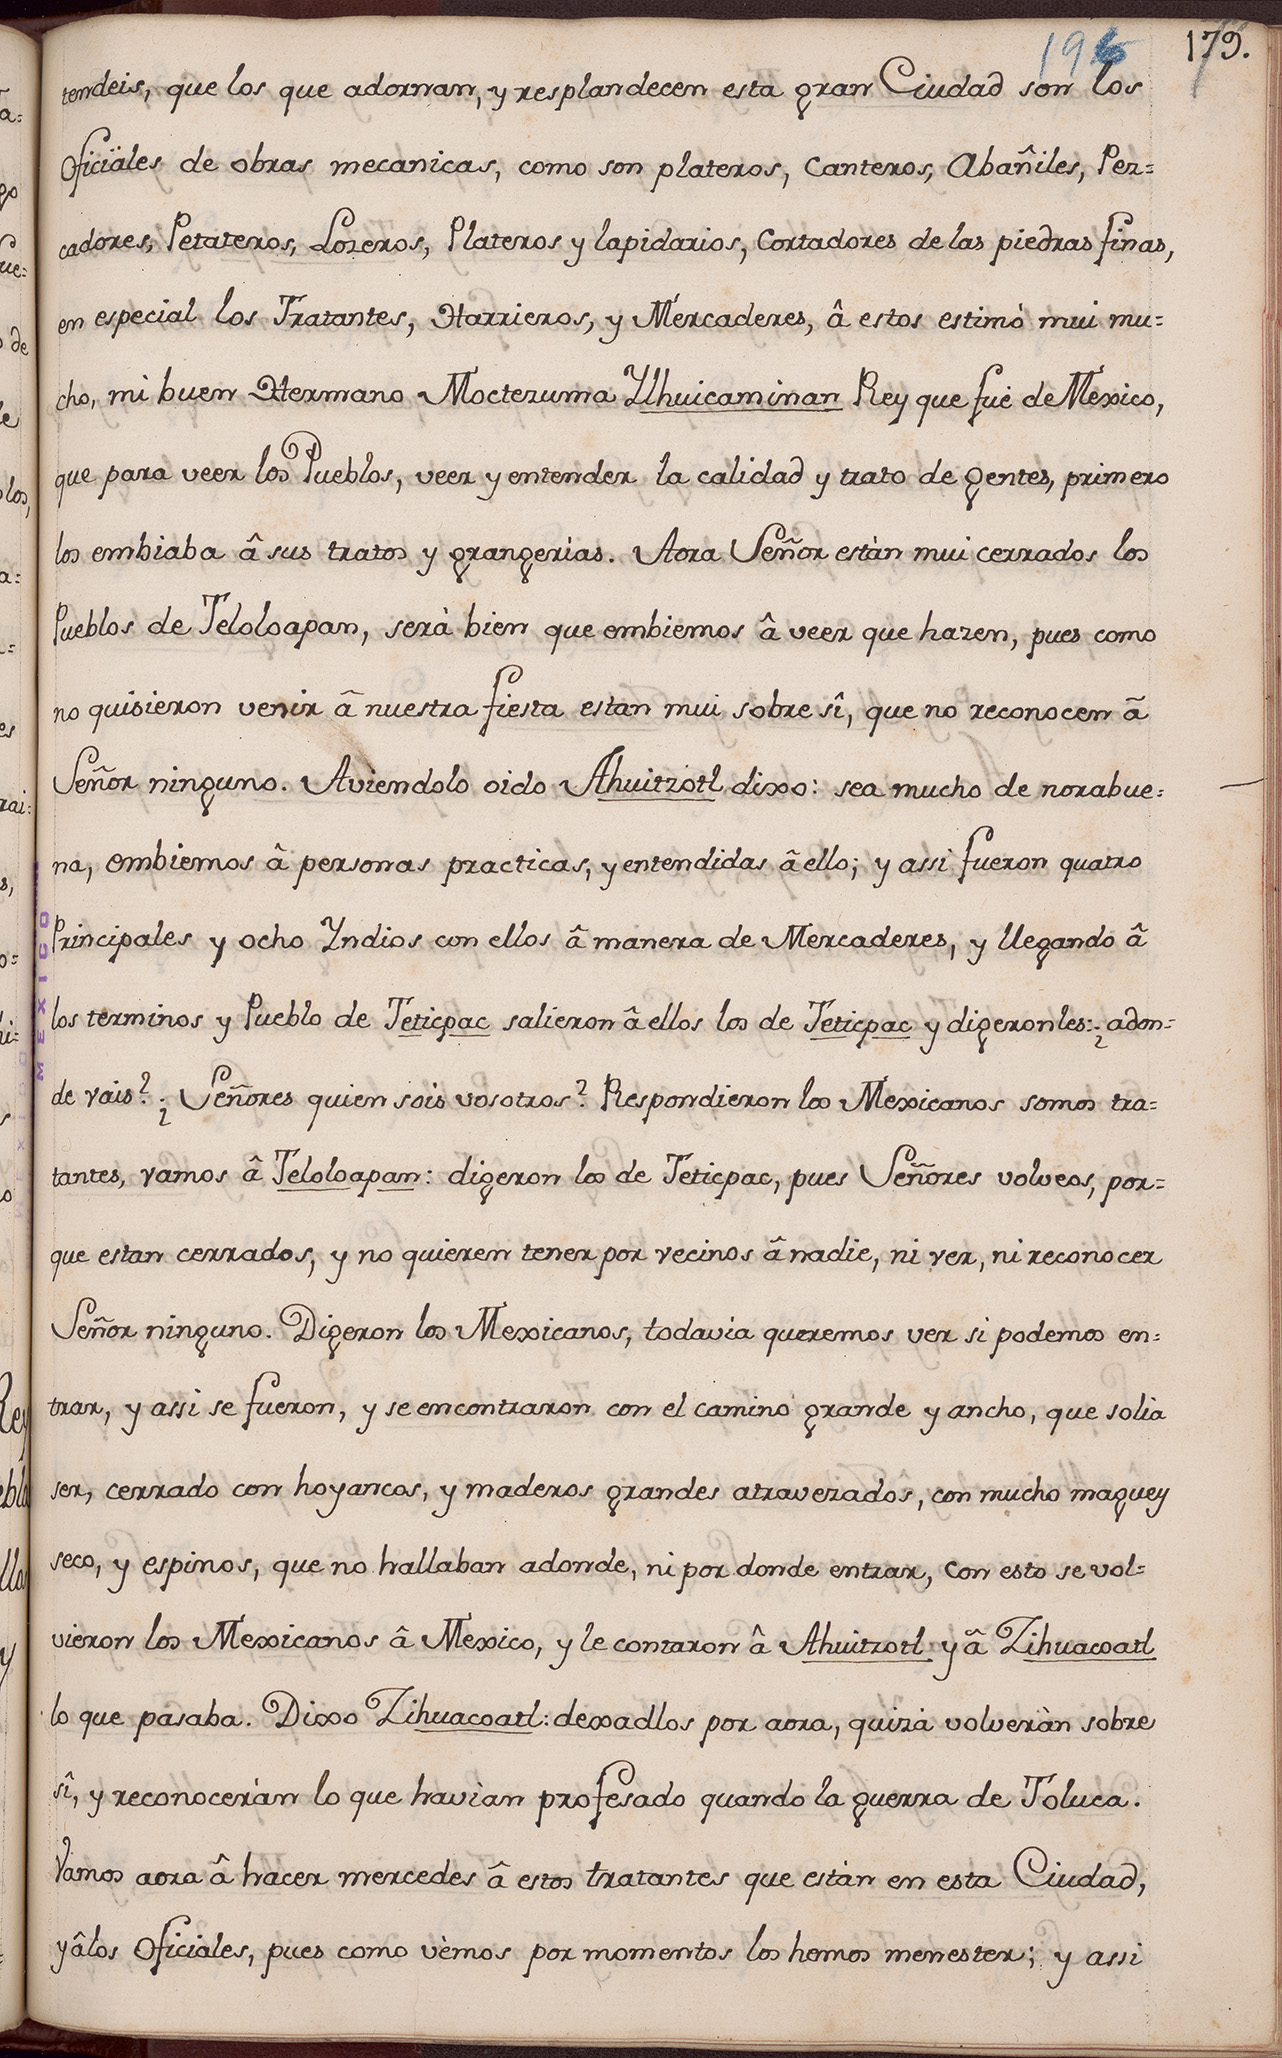 196 179.
tendeis, que los que adornan, y resplandecen esta gran Ciudad son los
Oficiales de obras mecanicas, como son plateros, Canteros, Abañiles, Per=
cadores, Petateros, Lozeros, Plateros y lapidarios, Cortadores de las piedras finas,
en especial los Tratantes, Harrieros, y Mercaderes, â estos estimò mui mu=
cho, mi buen Hermano Moctezuma Ylhuicaminan Rey que fuè de Mexico,
que para veer los Pueblos, veer y entender la calidad y trato de gentes, primero
los embiaba â sus tratos y grangerias. Aora Señor estàn mui cerrados los
Pueblos de Teloloapan, serà bien que embiemos â veer que hazen, pues como
no quisieron venir â nuestra fiesta estan mui sobre sî, que no reconocen â
Señor ninguno. Aviendolo oido Ahuitzotl dixo: sea mucho de norabue=
na, embiemos â personas practicas, y entendidas â ello; y assi fueron quatro
Principales y ocho Yndios con ellos â manera de Mercaderes, y llegando â
los terminos y Pueblo de Teticpac salieron â ellos los de Teticpac y digeronles: ¿adon=
de vais? ¿Señores quien sois vosotros? Respondieron los Mexicanos somos tra=
tantes, vamos â Teloloapan: digeron los de Teticpac, pues Señores volveos, por=
que estan cerrados, y no quieren tener por vecinos â nadie, ni ver, ni reconocer
Señor ninguno. Digeron los Mexicanos, todavia queremos ver si podemos en=
trar, y assi se fueron, y se encontraron con el camino grande y ancho, que solia
ser, cerrado con hoyancos, y maderos grandes atravezados, con mucho maguey
seco, y espinos, que no hallaban adonde, ni por donde entrar, con esto se vol=
vieron los Mexicanos â Mexico, y le contaron â Ahuitzotl y â Zihuacoatl
lo que pasaba. Dixo Zihuacoatl: dexadlos por aora, quizà volveràn sobre
sî, y reconoceràn lo que havian profesado quando la guerra de Toluca.
Vamos aora â hacer mercedes â estos tratantes que estàn en esta Ciudad,
y â los Oficiales, pues como vèmos por momentos los hemos menester; y assi
MEXICO